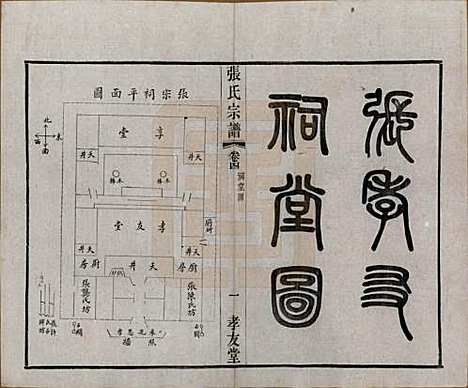 張孝友
祠堂圖
張氏宗譜
卷四
祠堂圖
一
孝友堂
張宗祠平面圖
北
東
南
西
享堂
天井
天井
孝友堂
天井
天井
天井
廚房
廚房
張陳氏坊
張龔氏坊
照牆